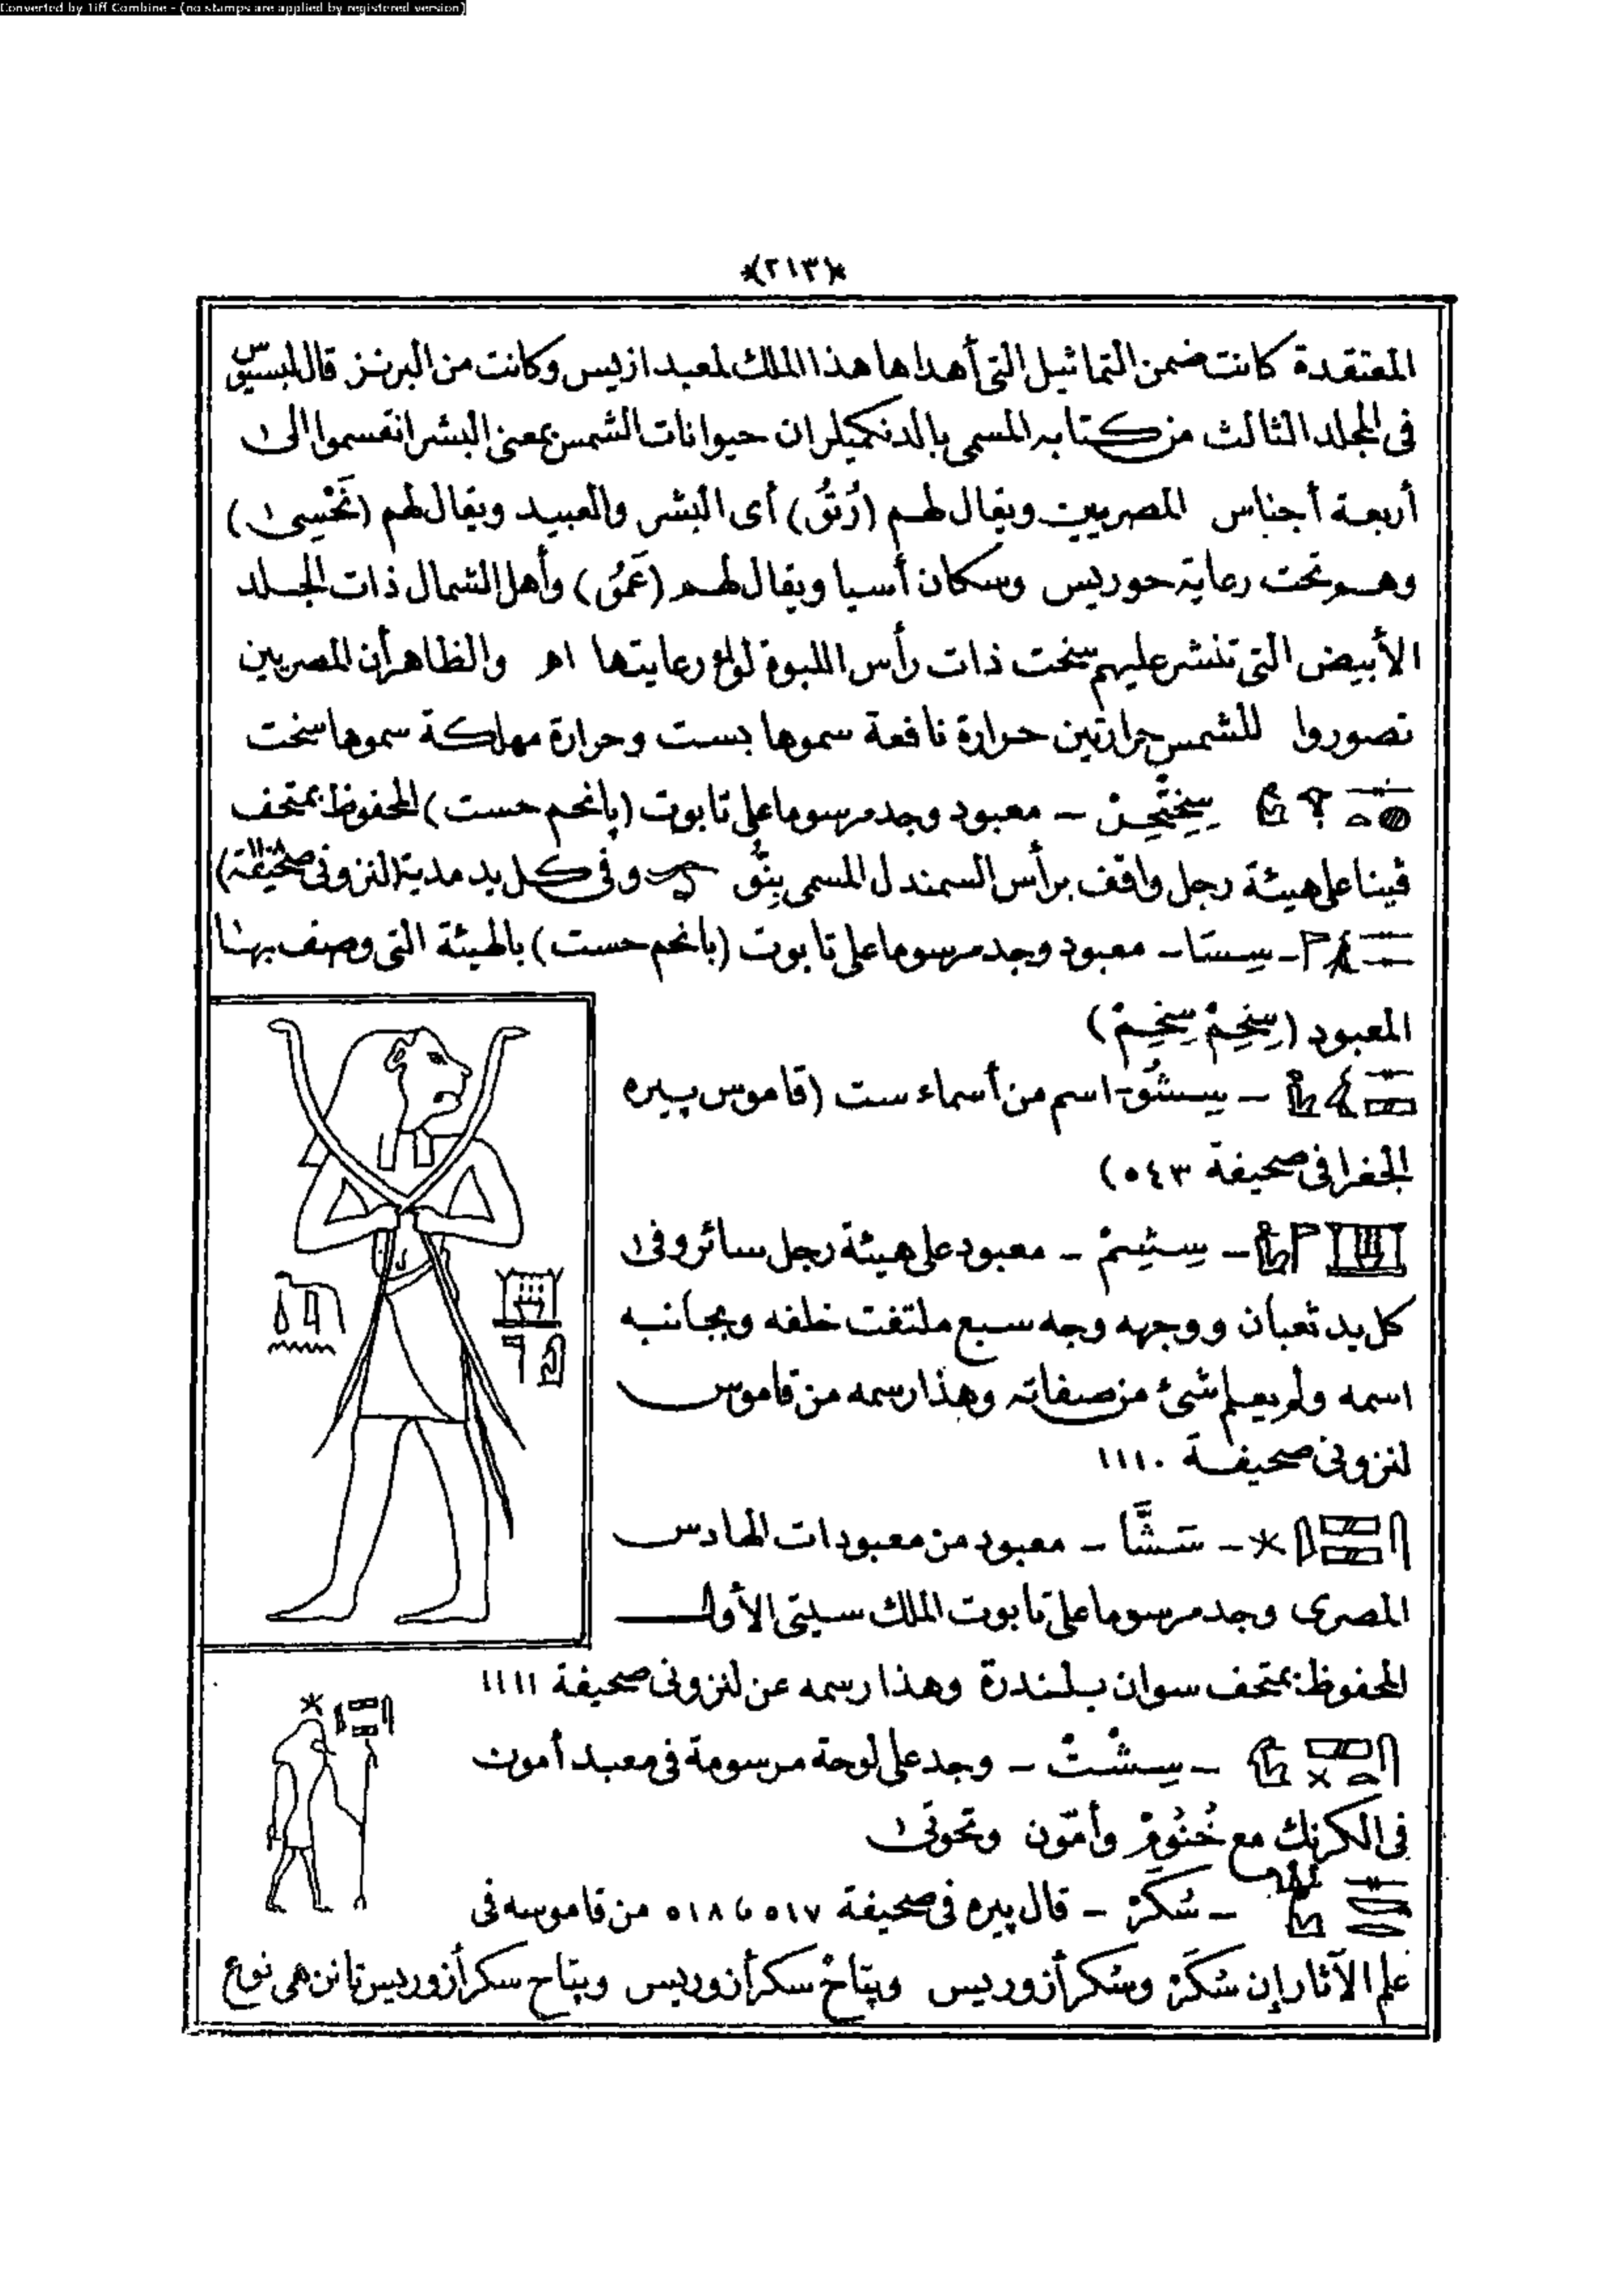 Converted by Tiff Combine - (no stamps are applied by registered version)
*(٢١٣)*
المعتقدة كانت ضمن التماثيل التى أهداها هذا الملك لمعبد ازيس وكانت من البرنز قال لبسيوس
فى المجلد الثالث من كتابه المسمى بالدنكميلر ان حيوانات الشمس بمعنى البشر انقسموا الى
أربعة أجناس المصريين ويقال لهم (رُتُو) أى البشر والعبيد ويقال لهم (نَحْسِى)
وهم تحت رعاية حوريس وسكان أسيا ويقال لهم (عَمُو) وأهل الشمال ذات الجلد
الأبيض التى تنشر عليهم سخت ذات رأس اللبوة لواء رعايتها اه والظاهر أن المصريين
تصوروا للشمس حرارتين حرارة نافعة سموها بست وحرارة مهلكة سموها سخت
معبود وجد مرسوما على تابوت (پانحم حست) المحفوظ بمتحف
ڤينا على هيئة رجل واقف برأس السمندل المسمى بِنُّو وفى كل يد مدية (لنزونى صحيفة)
سِسَا - معبود وجد مرسوما على تابوت (بانحم حست) بالهيئة التى وصف بها
المعبود (سِخِمْ سِخِمْ)
سِشُو - اسم من أسماء ست (قاموس پيره
الجغرافى صحيفة ٥٤٣)
سِشِمْ - معبود على هيئة رجل سائر وفى
كل يد ثعبان ووجهه وجه سبع ملتفت خلفه وبجانبه
اسمه ولم يعلم شئ من صفاته وهذا رسمه من قاموس
لنزونى صحيفة ١١١٠
سَشَّا - معبود من معبودات الهادس
المصرى وجد مرسوما على تابوت الملك سيتى الأول
المحفوظ بمتحف سوان بلندرة وهذا رسمه عن لنزونى صحيفة ١١١١
سِشْتْ - وجد على لوحة مرسومة فى معبد أمون
فى الكرنك مع خُنُومْ وأمّون وتحوتى
سُكَرْ - قال پيره فى صحيفة ٥١٧ و ٥١٨ من قاموسه فى
علم الآثار إن سُكَرْ وسُكر أزوريس وپتاح سكر أزوريس وپتاح سكر أزوريس تانن هى نوع